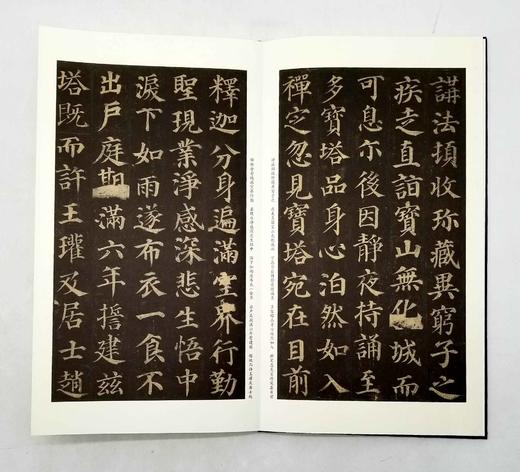 講法頃收珎藏異窮子之
疾走直詣寶山無化城而
可息尒後因靜夜持誦至
多寶塔品身心泊然如入
禪定忽見寶塔宛在目前
釋迦分身遍滿空界行勤
聖現業淨感深悲生悟中
淚下如雨遂布衣一食不
出戶庭期滿六年誓建茲
塔既而許王瓘及居士趙